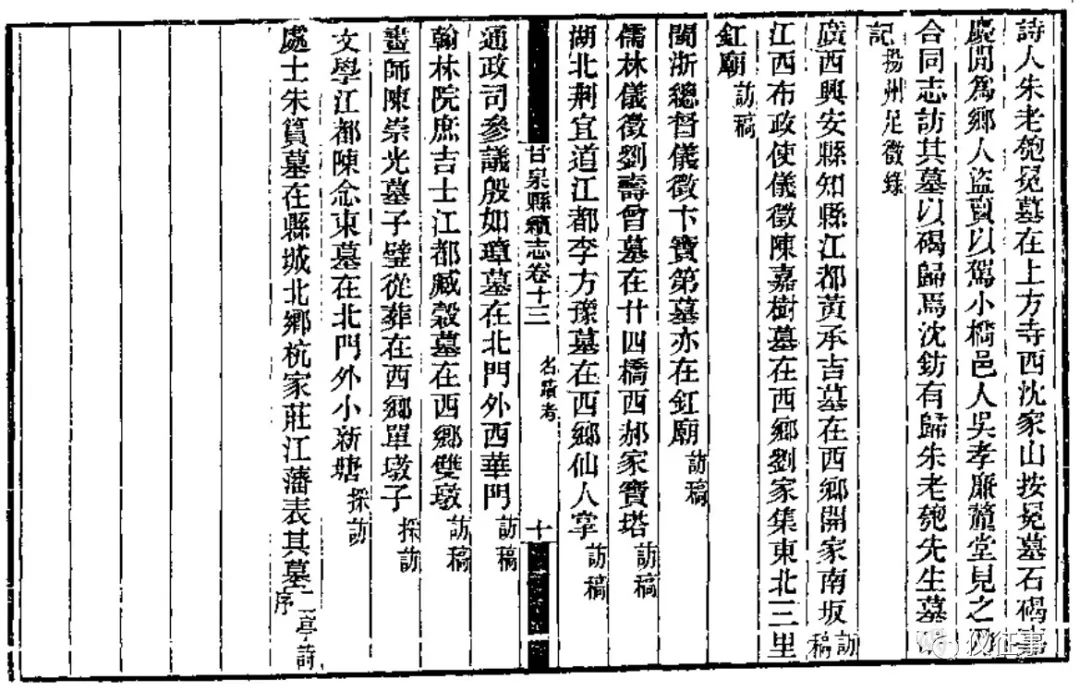 詩人朱老匏冕墓在上方寺西沈家山按冕墓石碣嘉
慶閒爲鄉人盜賣以駕小橋邑人吳孝廉蘭堂見之乃
合同志訪其墓以碣歸焉沈鈁有歸朱老匏先生墓
記揚州足徵錄
廣西興安縣知縣江都黃承吉墓在西鄉開家南坂訪稿
江西布政使儀徵陳嘉樹墓在西鄉劉家集東北三里
釭廟訪稿
閩浙總督儀徵卞寶第墓亦在釭廟訪稿
儒林儀徵劉壽曾墓在廿四橋西郝家寶塔訪稿
湖北荆宜道江都李方豫墓在西鄉仙人掌訪稿
甘泉縣續志卷十三 名蹟考 十
通政司參議殷如璋墓在北門外西華門訪稿
翰林院庶吉士江都臧穀墓在西鄉雙墩訪稿
畫師陳崇光墓子璧從葬在西鄉單墩子採訪
文學江都陳念東墓在北門外小新塘採訪
處士朱篔墓在縣城北鄉杭家莊江藩表其墓二亭詩序
仪征事